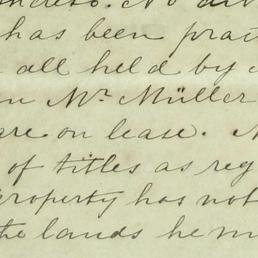 No
has been
all held by
Mr. Müller
are on lease.
of titles as reg
roperty has not
the lands he